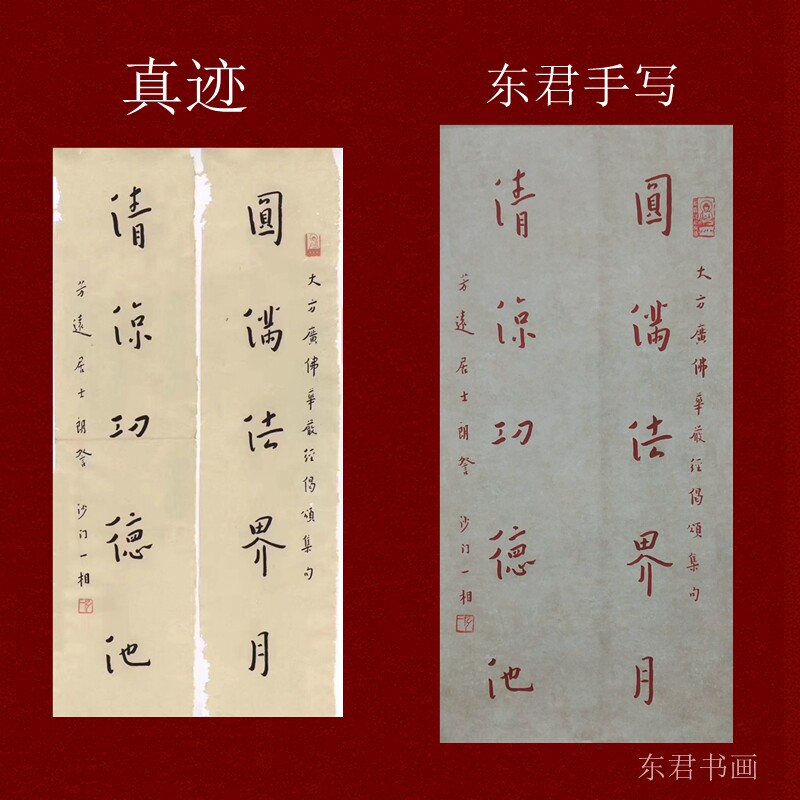 真迹
东君手写
大方廣佛華嚴經偈頌集句
圓滿法界月
清涼功德池
芳遠居士朗詧
沙门一相
大方廣佛華嚴經偈頌集句
圓滿法界月
清涼功德池
芳遠居士朗詧
沙门一相
东君书画